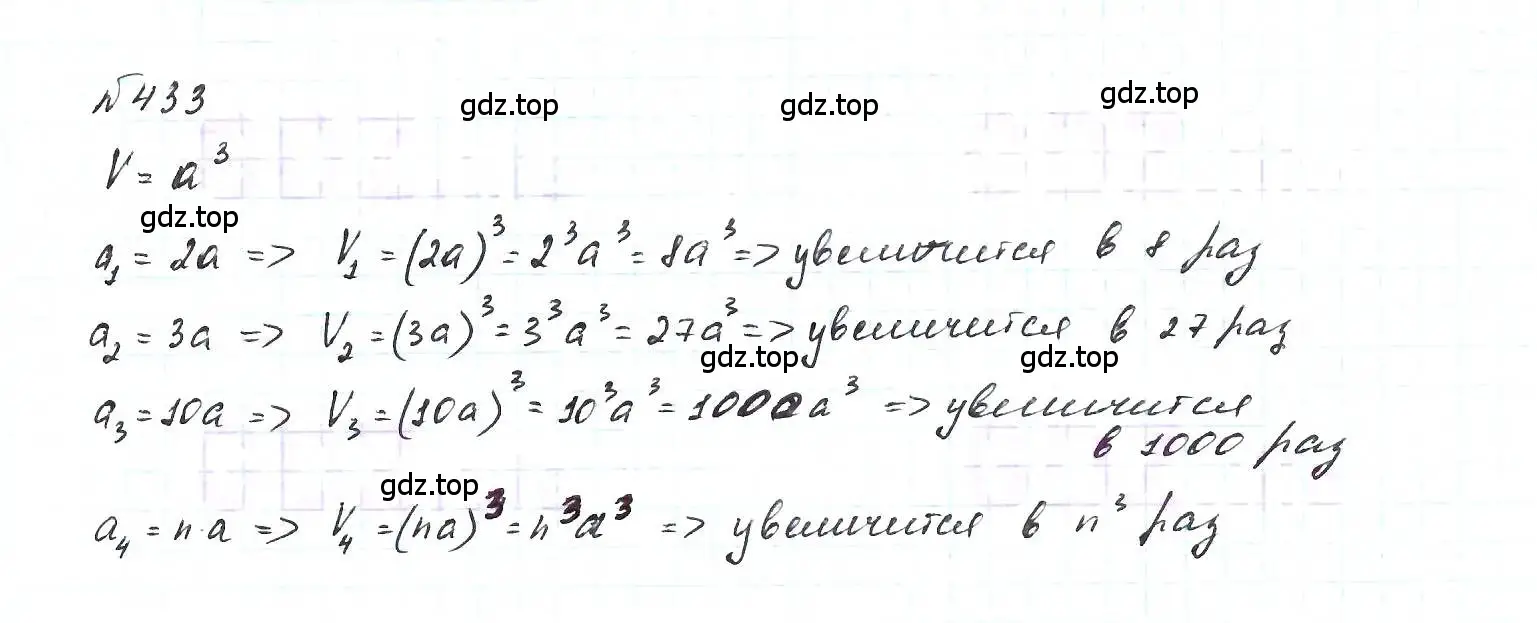 №433
gdz.top gdz.top gdz.top
V = a³
gdz.top
a₁ = 2a => V₁ = (2a)³ = 2³a³ = 8a³ => увеличится в 8 раз
a₂ = 3a => V₂ = (3a)³ = 3³a³ = 27a³ => увеличится в 27 раз
gdz.top gdz.top
a₃ = 10a => V₃ = (10a)³ = 10³a³ = 1000a³ => увеличится
в 1000 раз
gdz.top
a₄ = n·a => V₄ = (na)³ = n³a³ => увеличится в n³ раз